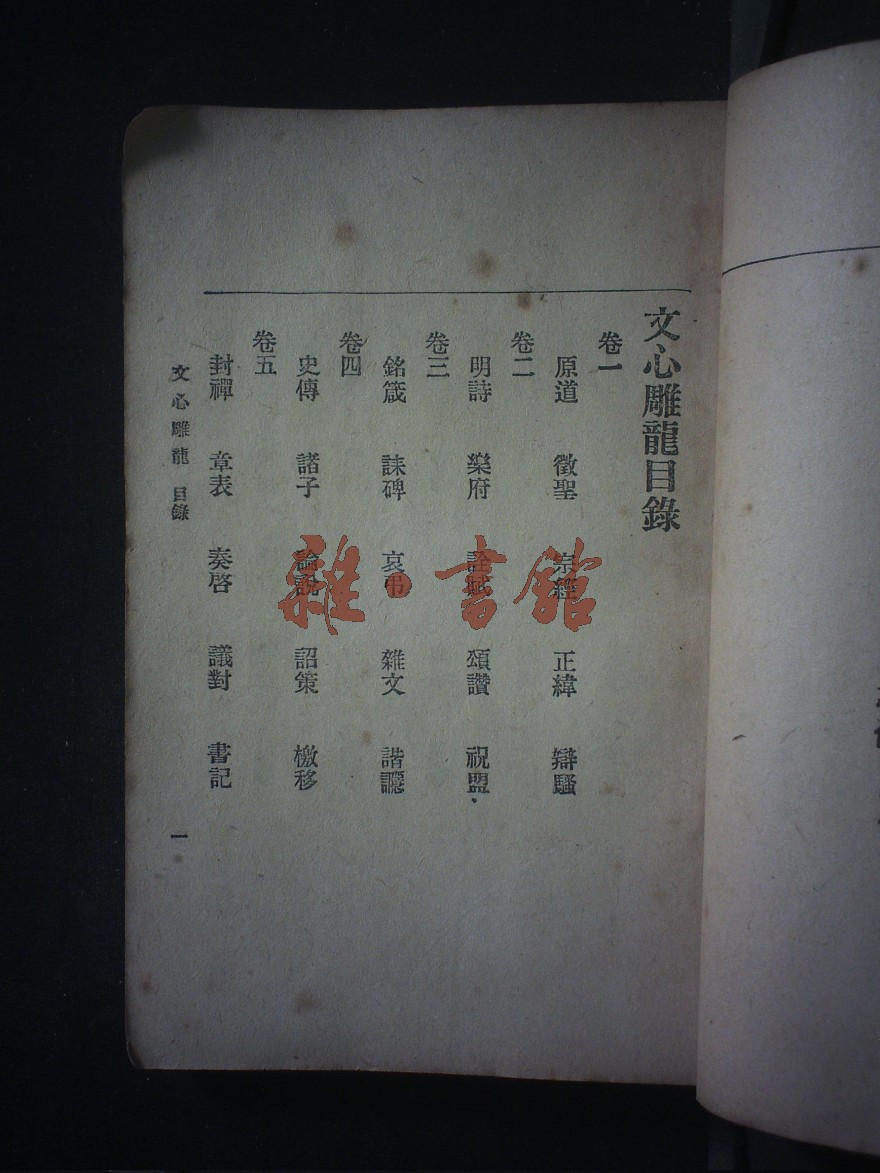 文心雕龍目錄
卷一
原道 徵聖 宗經 正緯 辯騷
卷二
明詩 樂府 詮賦 頌讚 祝盟
卷三
銘箴 誄碑 哀弔 雜文 諧讔
卷四
史傳 諸子 論說 詔策 檄移
卷五
封禪 章表 奏啓 議對 書記
文心雕龍 目錄
一
雜·書館